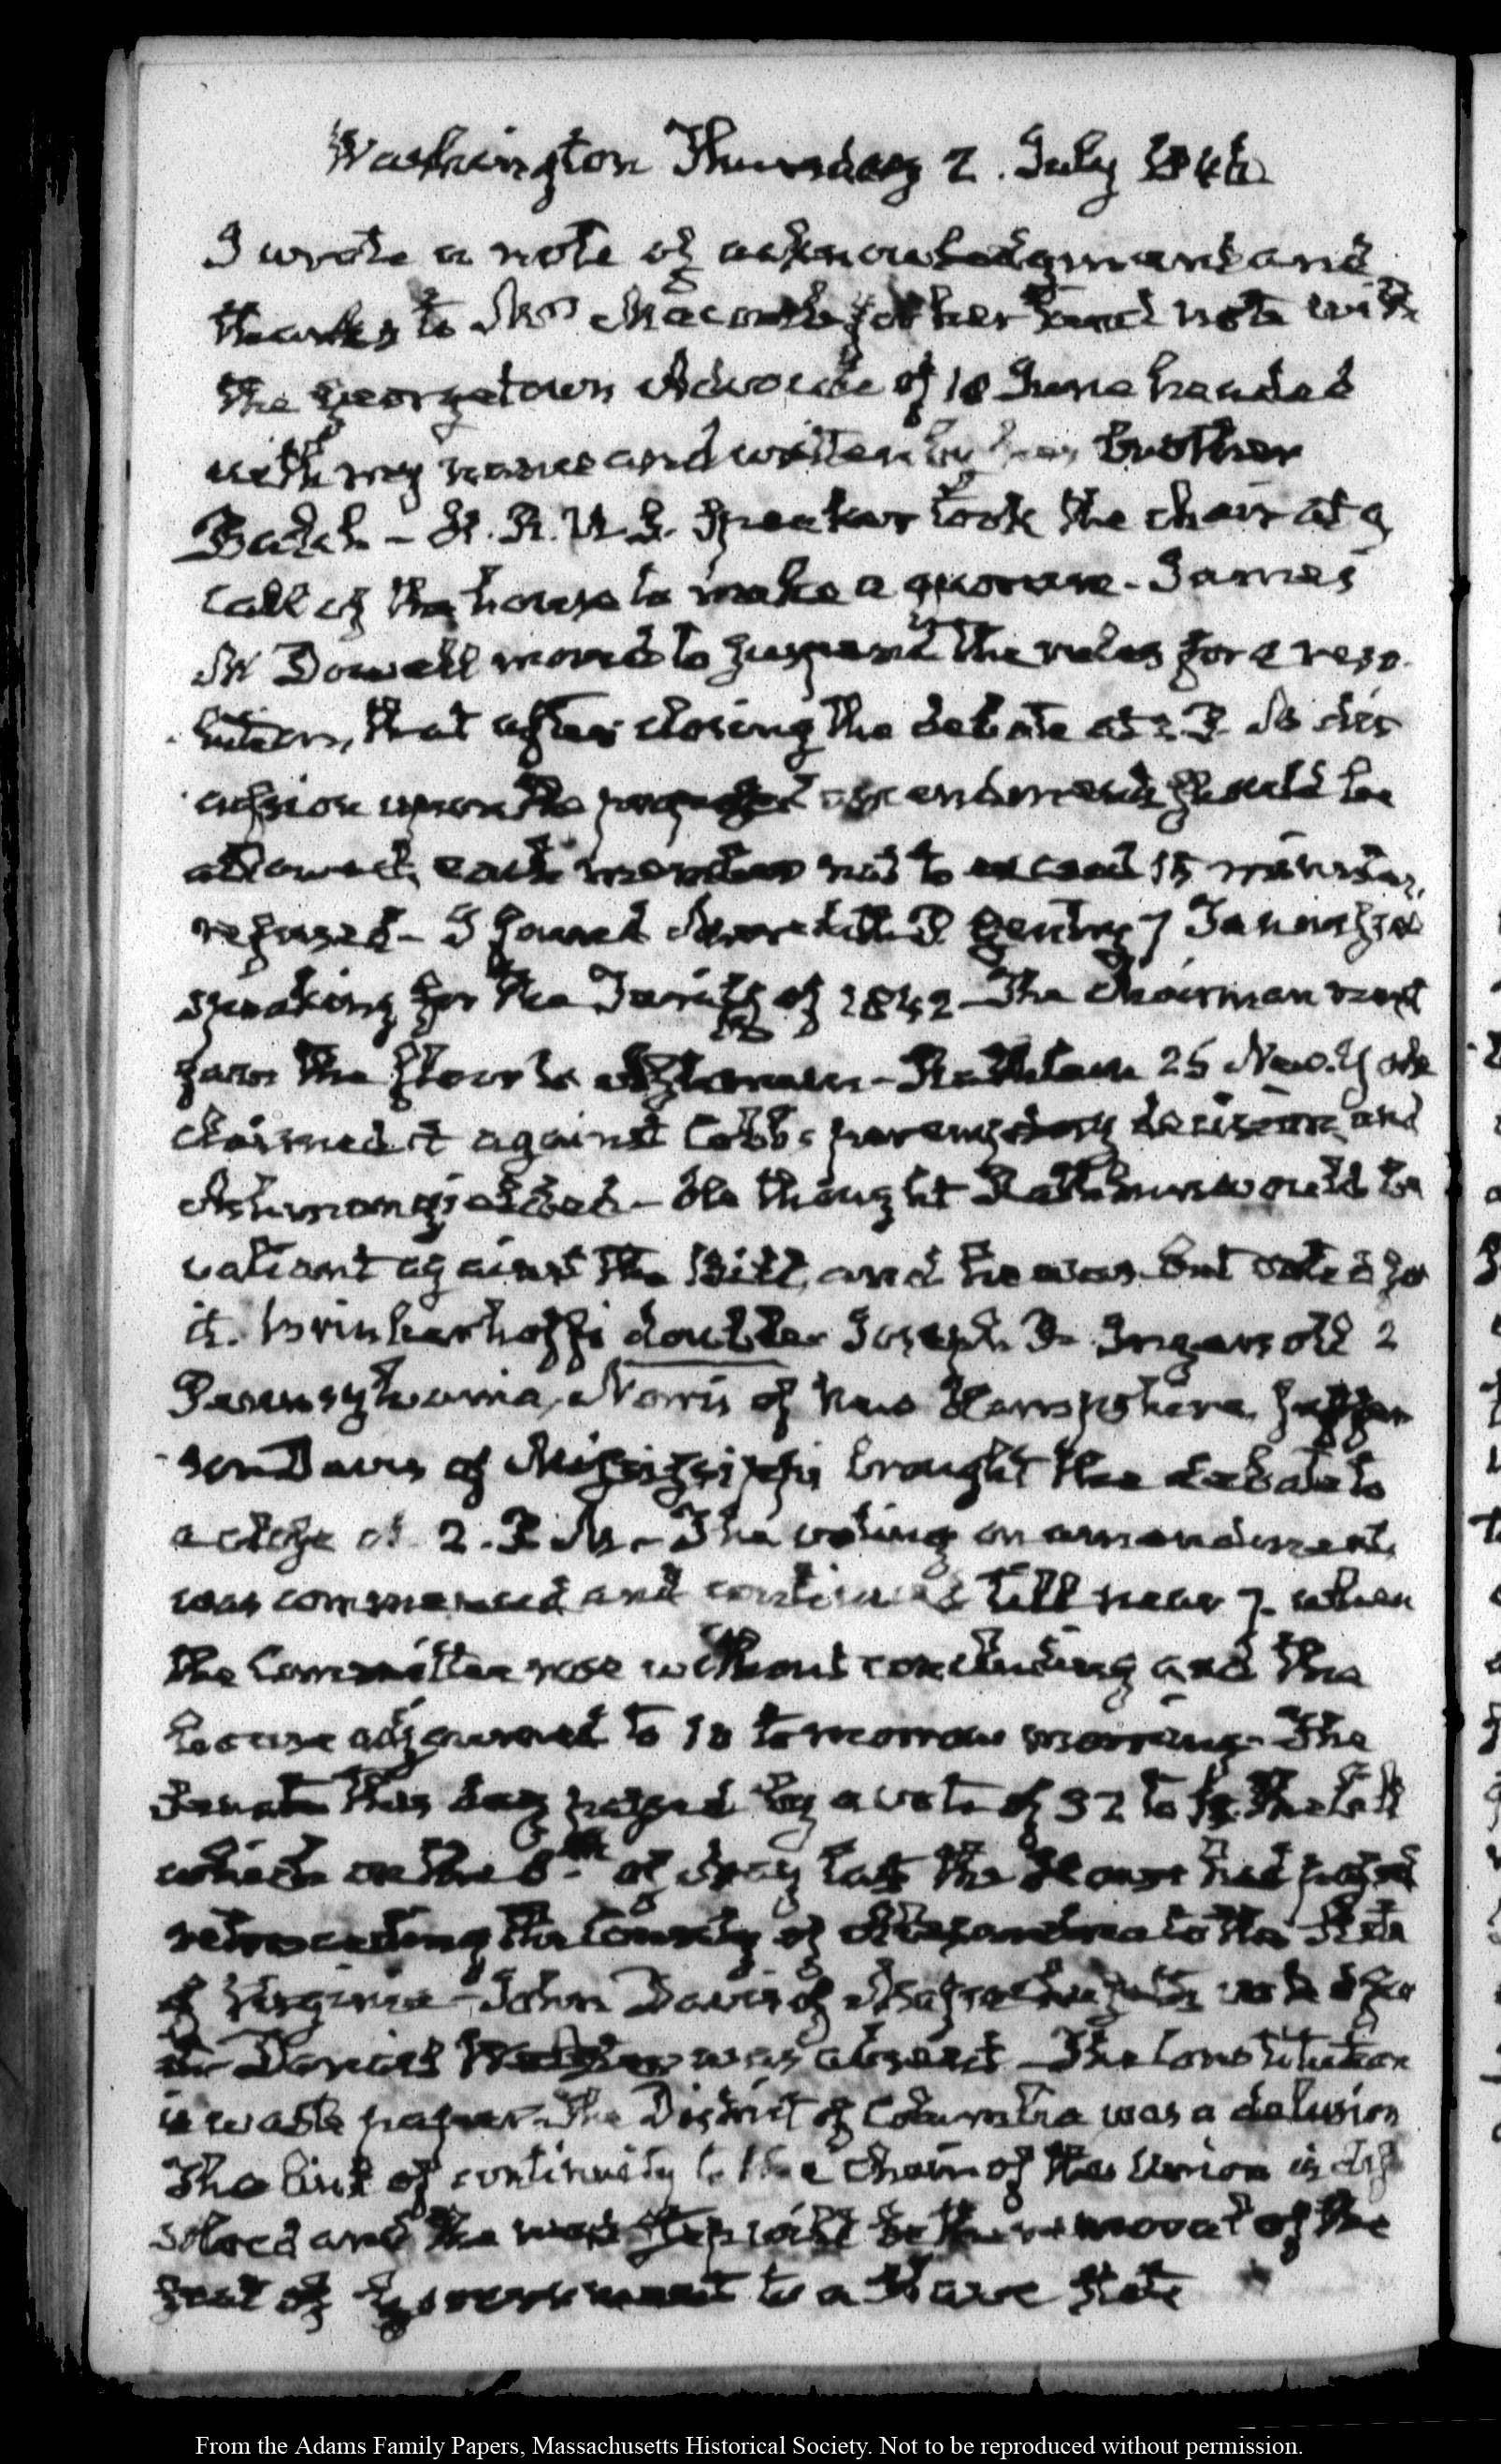 Washington Thursday 2. July 1846
I wrote a note of acknowledgment and
thanks to Mrs Macomb for her kind note with
the Georgetown Advocate of 18 June headed
with my name and written by her brother
H. R. U.S. Speaker took the chair at 9
call of the house to make a quorum - James
McDowell moved to suspend the rules for a reso-
lution, that after closing the debate at 2 P. M. dis
cussion upon the proposed amendments should be
allowed, each member not to exceed 15 minutes,
refused - I found Meredith P. Gentry 7 Tennessee
speaking for the Tariff of 1842 - The chairman next
gave the floor to Ashmun - Rathbun 25 New-York
claimed it against Cobb's peremptory decision, and
Ashmun yielded - He thought Rathbun would be
valiant against the Bill, and he was but voted for
it. Brinkerhoff's double Joseph R. Ingersoll 2
Pennsylvania, Norris of New Hampshire, Jeffer
son Davis of Mississippi brought the debate to
a close at 2. P. M. - The voting on amendments
was commenced and continued till near 7. when
the Committee rose without concluding and the
house adjourned to 10 tomorrow morning - The
Senate this day passed by a vote of 32 to 14 the bill
which on the 8th of May last the House had passed
retroceding the County of Alexandria to the State
of Virginia - John Davis of Massachusetts voted for
it - Daniel Webster was absent - The Constitution
is waste paper - The District of Columbia was a delusion
The link of continuity to the chain of the Union is dis
solved and the next step will be the removal of the
seat of Government to a Slave State
From the Adams Family Papers, Massachusetts Historical Society. Not to be reproduced without permission.